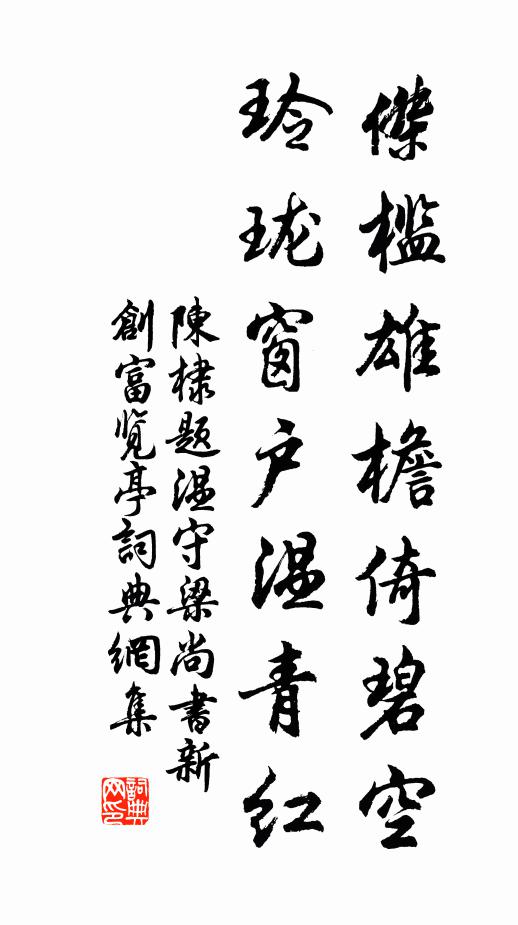 傑檻雄檐倚碧空
玲珑窗户湿青红
陳棣题温守梁尚書新
創富览亭詞典網集
詞典网印